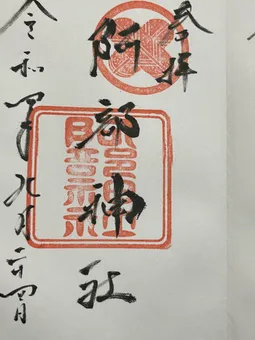 参拝
阿部神社
令和四年九月二十四日